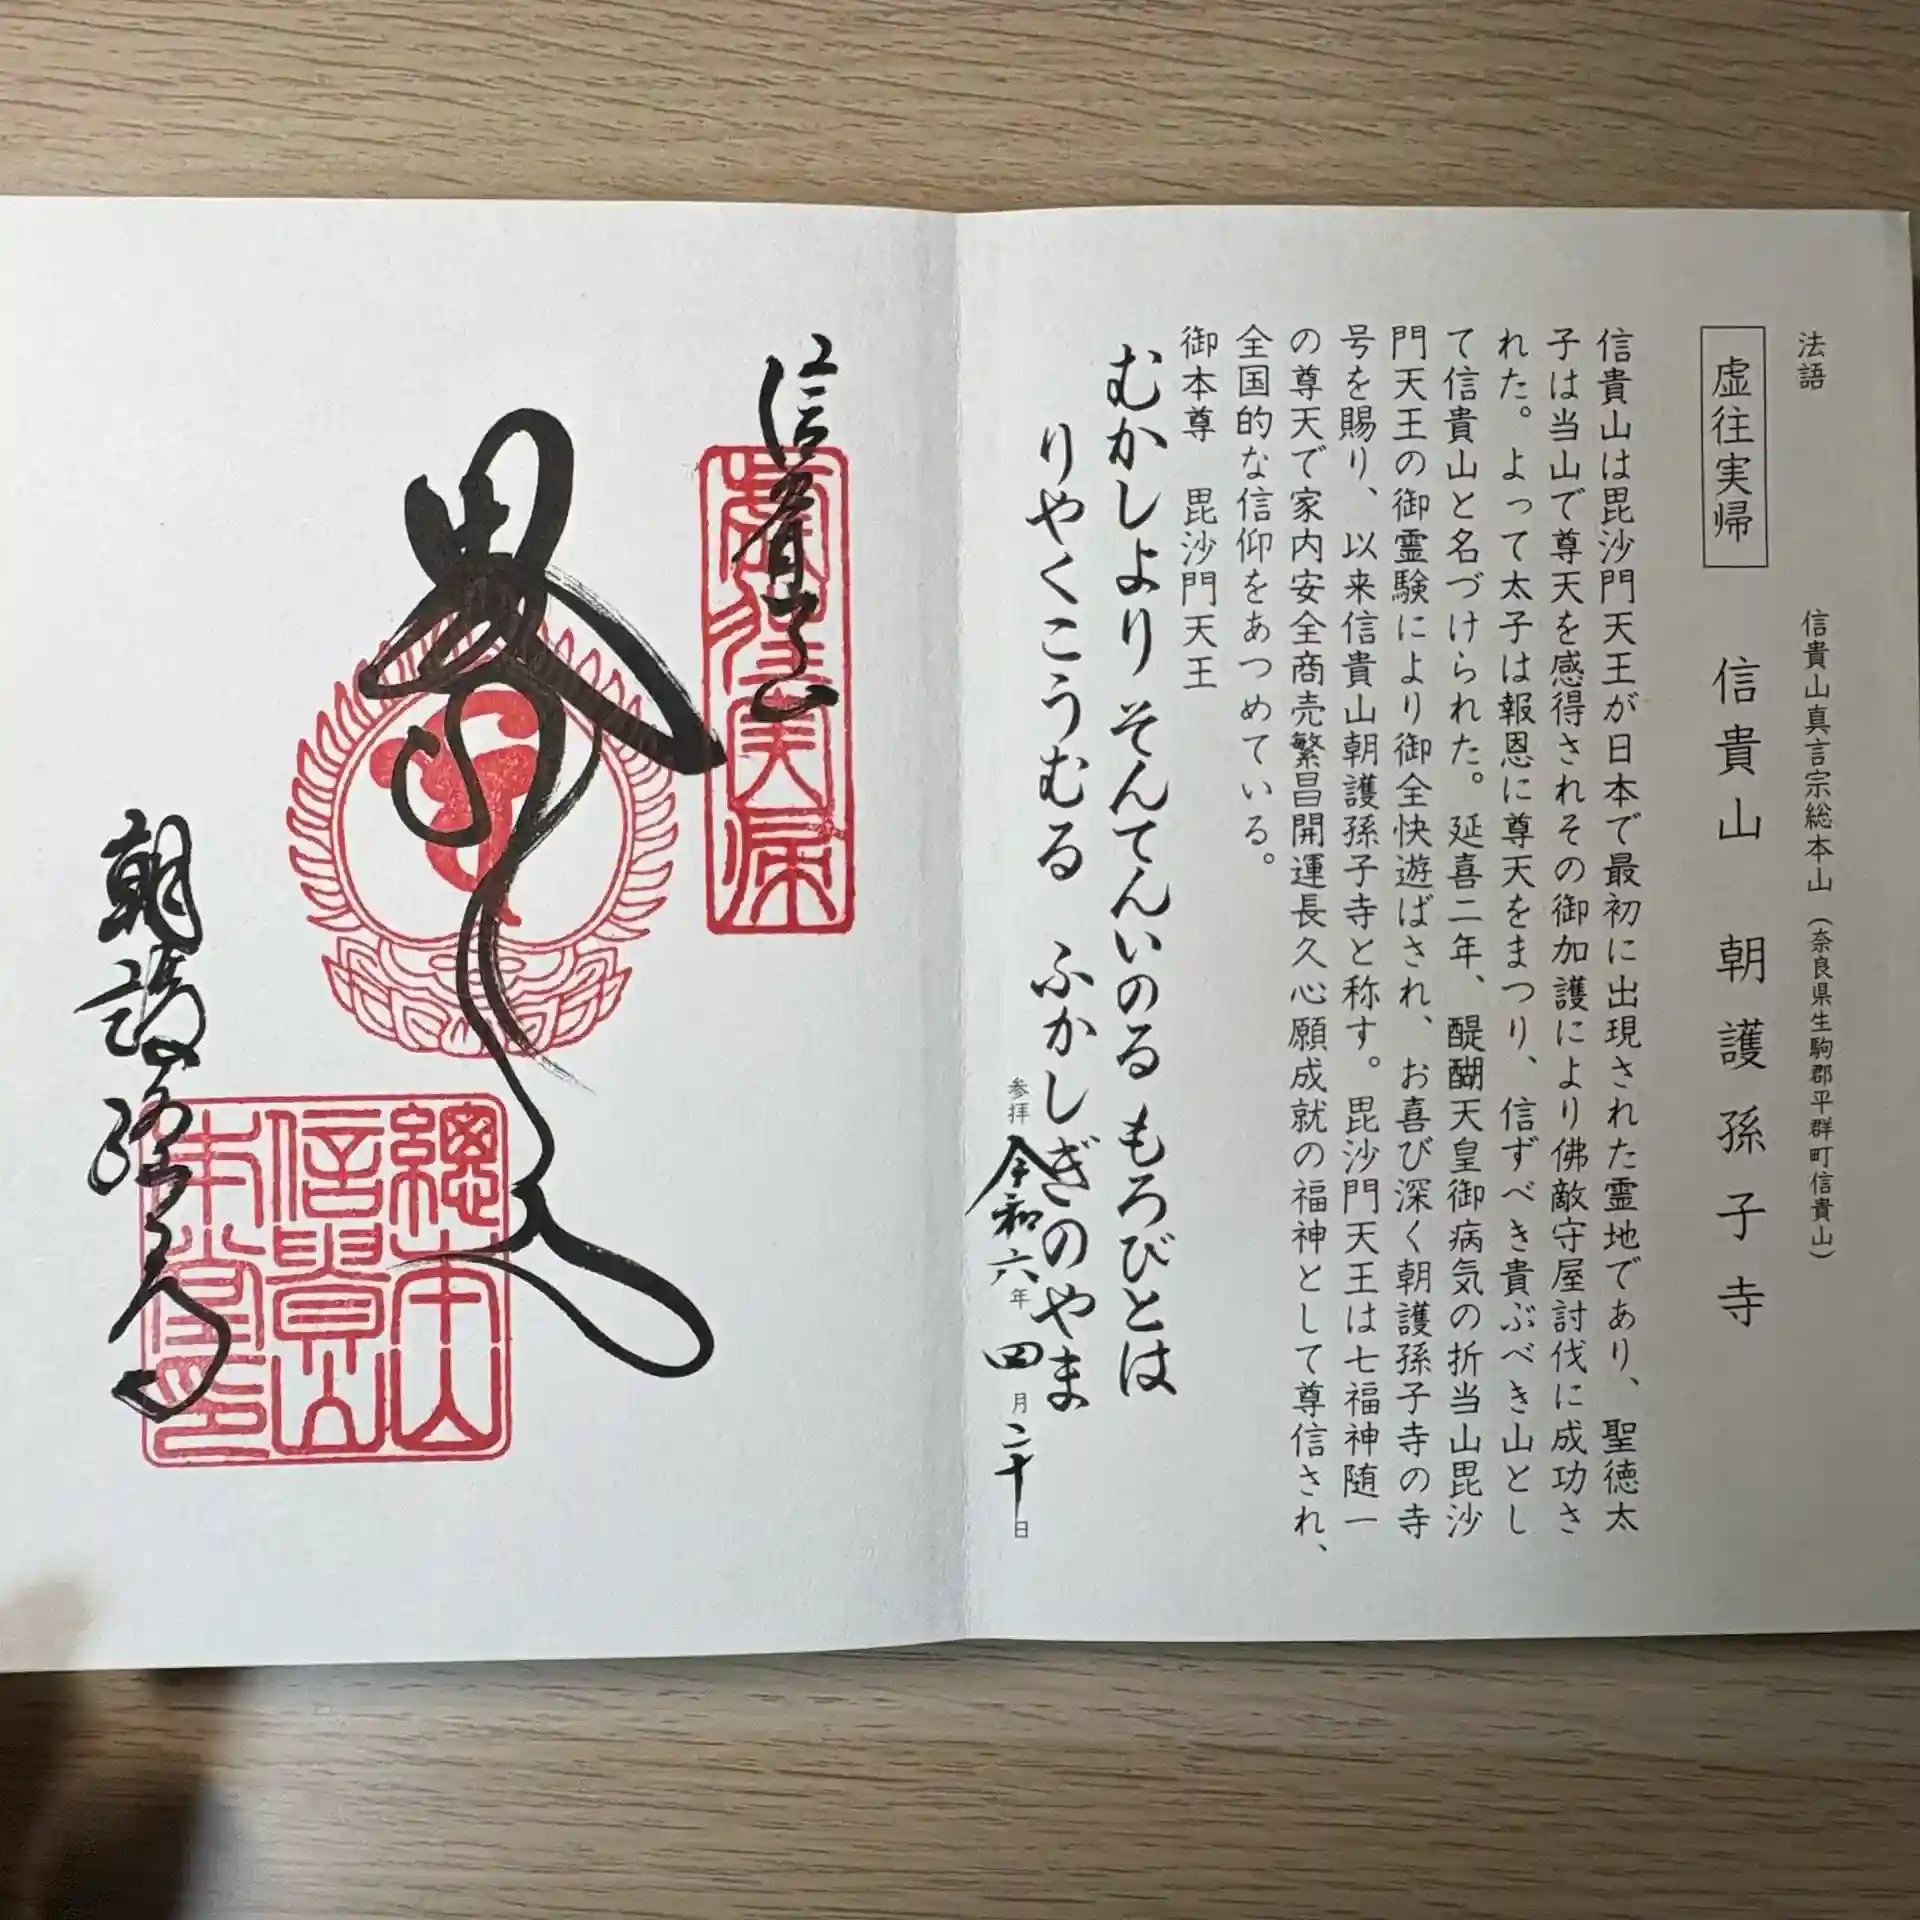 法語
信貴山真言宗総本山(奈良県生駒郡平群町信貴山)
虚往実帰
信貴山 朝護孫子寺
信貴山は毘沙門天王が日本で最初に出現された霊地であり、聖徳太
子は当山で尊天を感得されその御加護により佛敵守屋討伐に成功さ
れた。よって太子は報恩に尊天をまつり、信ずべき貴ぶべき山とし
て信貴山と名づけられた。延喜二年、醍醐天皇御病気の折当山毘沙
門天王の御霊験により御全快遊ばされ、お喜び深く朝護孫子寺の寺
号を賜り、以来信貴山朝護孫子寺と称す。毘沙門天王は七福神随一
の尊天で家内安全商売繁昌開運長久心願成就の福神として尊信され、
全国的な信仰をあつめている。
御本尊 毘沙門天王
むかしより そんてんいのる もろびとは
りやくこうむる ふかしぎのやま
参拝 令和六年 四月二十日
信貴山
虚往実帰
朝護孫子寺
總本山
信貴山
本堂印